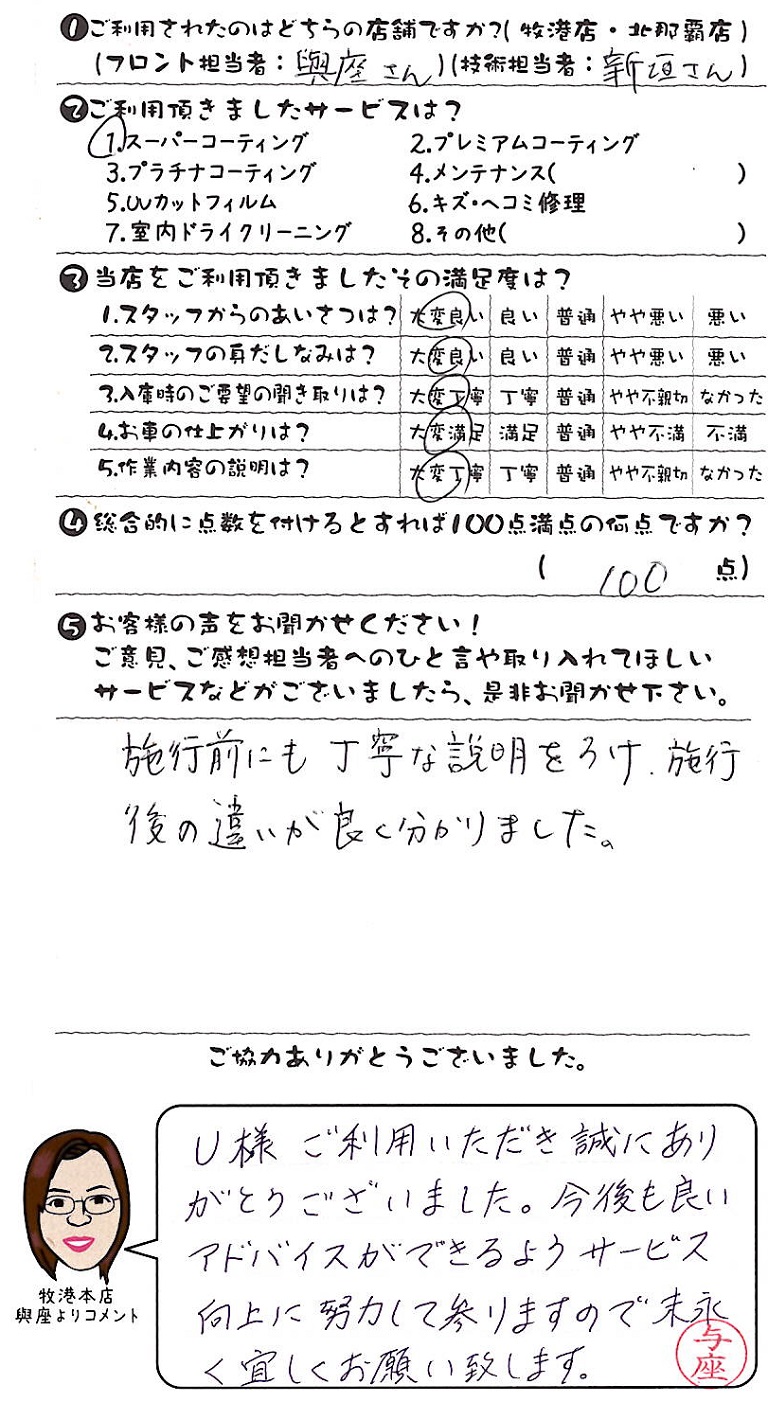 ❶ご利用されたのはどちらの店舗ですか?(牧港店・北那覇店)
(フロント担当者：與座さん)(技術担当者：新垣さん)
❷ご利用頂きましたサービスは?
1.スーパーコーティング 2.プレミアムコーティング
3.プラチナコーティング 4.メンテナンス( )
5.UVカットフィルム 6.キズ・ヘコミ修理
7.室内ドライクリーニング 8.その他( )
❸当店をご利用頂きましたその満足度は?
1.スタッフからのあいさつは? 大変良い 良い 普通 やや悪い 悪い
2.スタッフの身だしなみは? 大変良い 良い 普通 やや悪い 悪い
3.入庫時のご要望の聞き取りは? 大変丁寧 丁寧 普通 やや不親切 なかった
4.お車の仕上がりは? 大変満足 満足 普通 やや不満 不満
5.作業内容の説明は? 大変丁寧 丁寧 普通 やや不親切 なかった
❹総合的に点数を付けるとすれば100点満点の何点ですか?
( 100 点)
❺お客様の声をお聞かせください!
ご意見、ご感想担当者へのひと言や取り入れてほしい
サービスなどがございましたら、是非お聞かせ下さい。
施行前にも丁寧な説明をうけ、施行
後の違いが良く分かりました。
ご協力ありがとうございました。
U様 ご利用いただき誠にあり
がとうございました。今後も良い
アドバイスができるようサービス
向上に努力して参りますので末永
く宜しくお願い致します。
与座
牧港本店
與座よりコメント